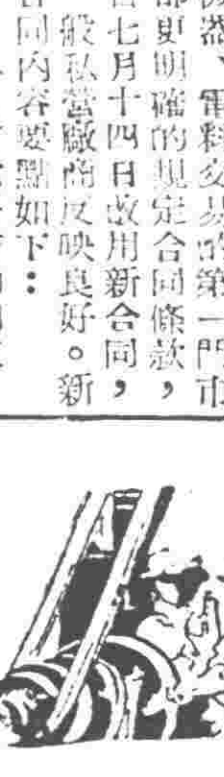 器、電料交易的第一門市
部更明確的規定合同條款，
七月十四日改用新合同，
般私營廠商反映良好。新
同內容要點如下：